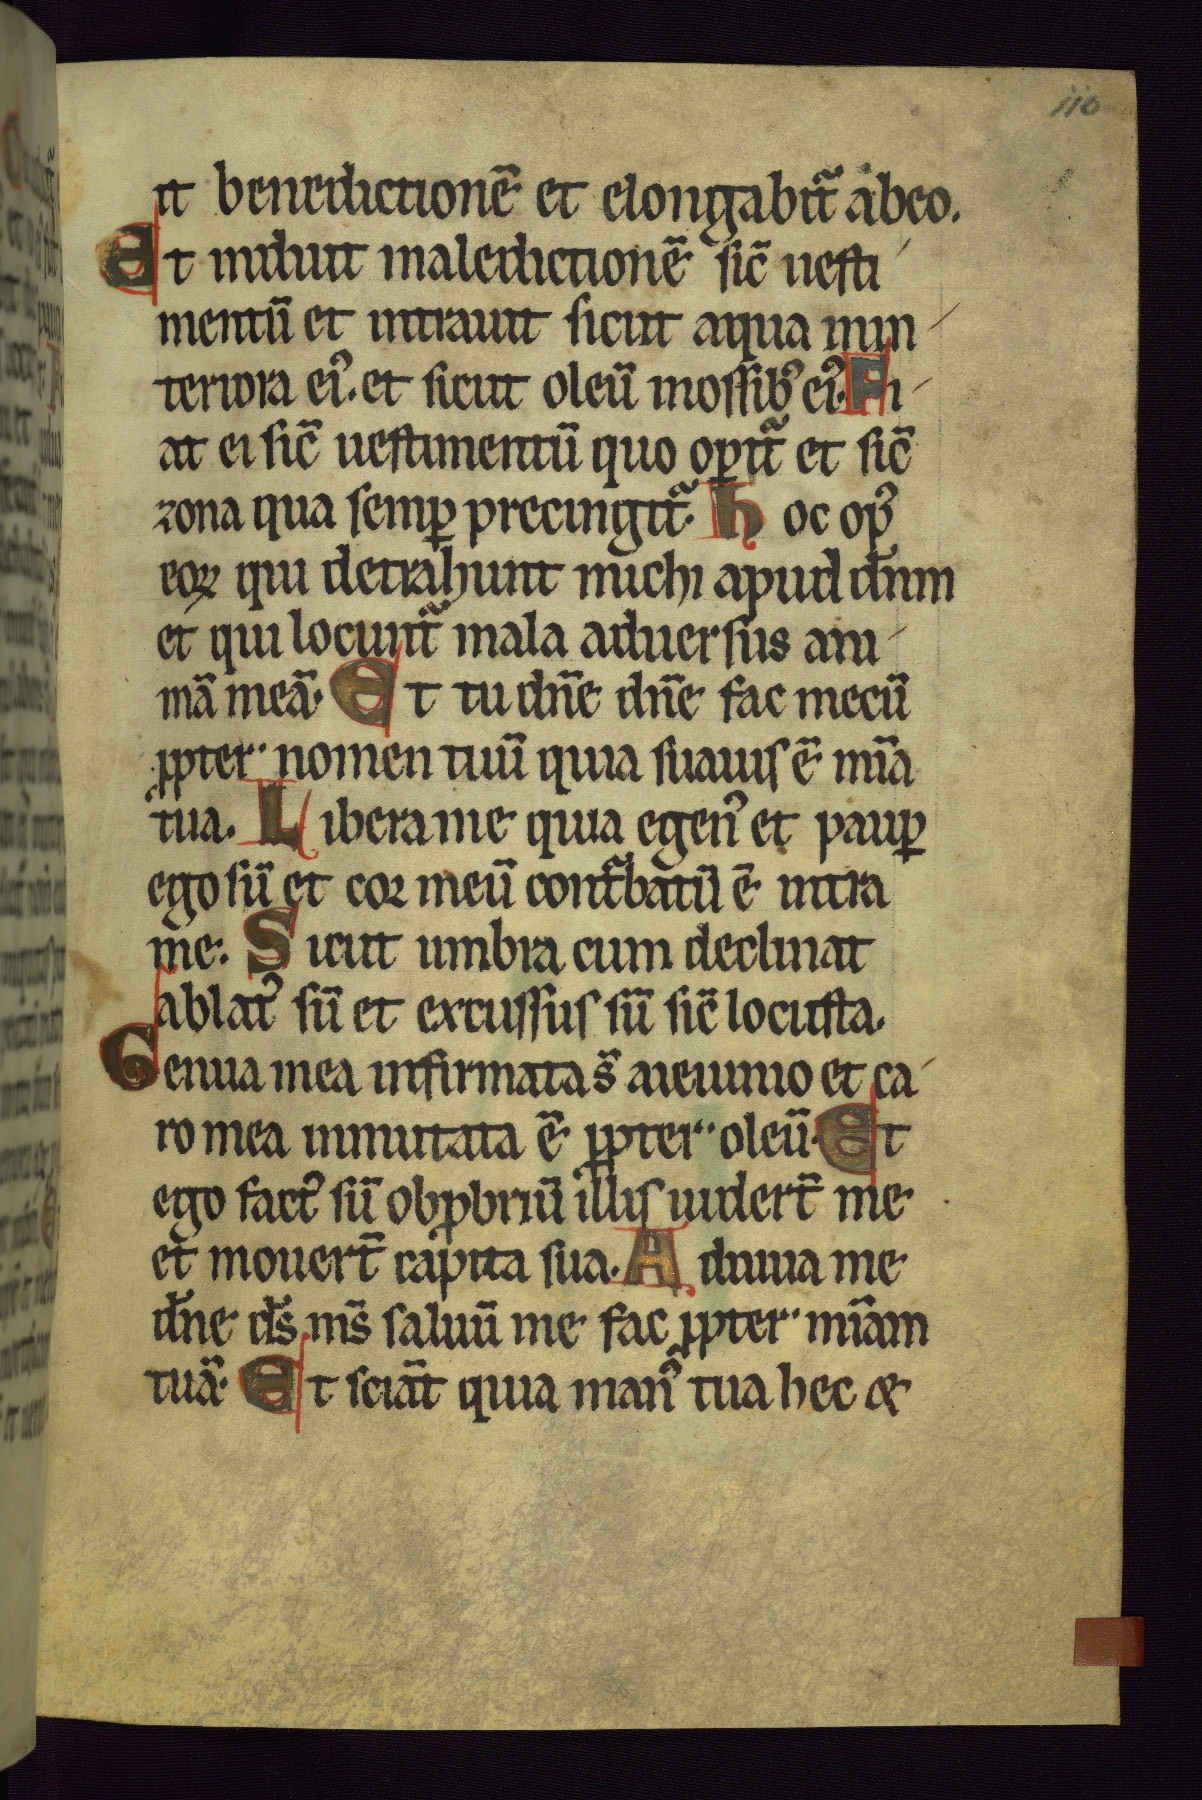 110
it benedictionē et elongabit᷑ abeo.
Et induit maledictionē sic̄ uesti
mentū et intrauit sicut aqua inin
teriora ei᾿. et sicut oleū inossib᾿ ei᾿. Fi
at ei sic̄ uestimentū quo oꝑit᷑ et sic̄
zona qua semꝑ precingit᷑. hoc op᾿
eoꝝ qui detrahunt michi apud dn̄m
et qui locunt᷑ mala aduersus ani
mā meā. Et tu dn̄e dn̄e fac mecū
ꝓpter nomen tuū quia suauis ē mīa
tua. Libera me quia egen᾿ et pauꝑ
ego sū et coꝛ meū cont᷑batū ē intra
me. Sicut umbra cum declinat
ablat᾿ sū et excussus sū sic̄ locusta.
Genua mea infirmata s̄ aieiunio et ca
ro mea inmutata ē ꝓpter oleū. Et
ego fact᾿ sū obꝓbriū illis uidert̄ me
et mouert̄ capita sua. Adiuua me
dn̄e ds̄ ms̄ saluū me fac ꝓpter mīam
tuā. Et sciāt quia man᾿ tua hec &